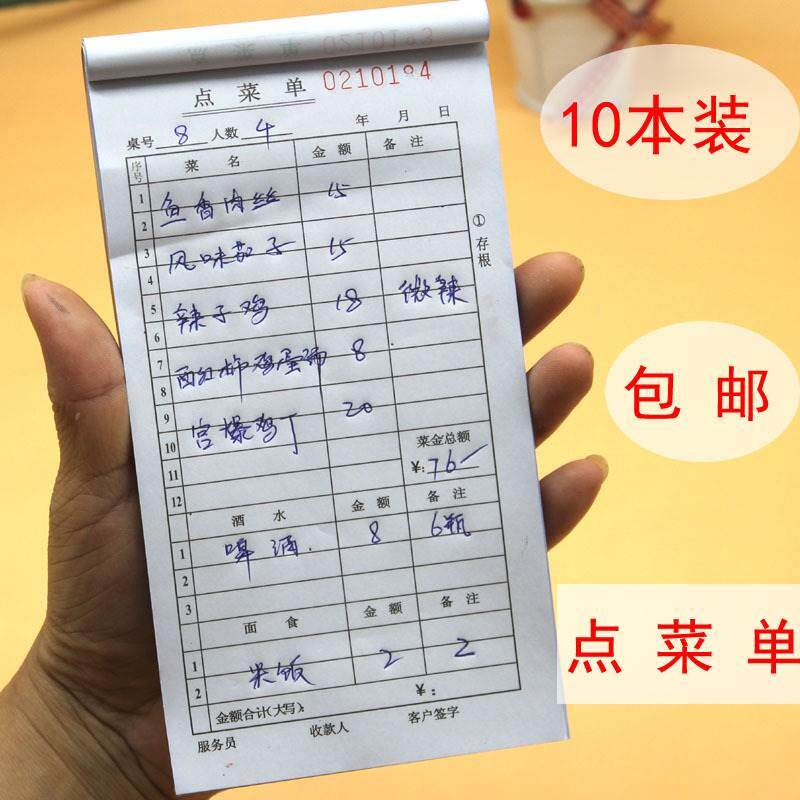 点菜单 0210184
10本装
桌号 8 人数 4 年 月 日
序号 菜名 金额 备注
1
2 鱼香肉丝 15
3 风味茄子 15
4
5 辣子鸡 18 微辣
6
7 西红柿鸡蛋汤 8
8
9 宫爆鸡丁 20
10
11 菜金总额
12 ¥:76
①存根
包邮
酒水 金额 备注
1 啤酒 8 6瓶
2
3
面食 金额 备注
1 米饭 2 2
2
金额合计(大写): ¥:
服务员 收款人 客户签字
点菜单